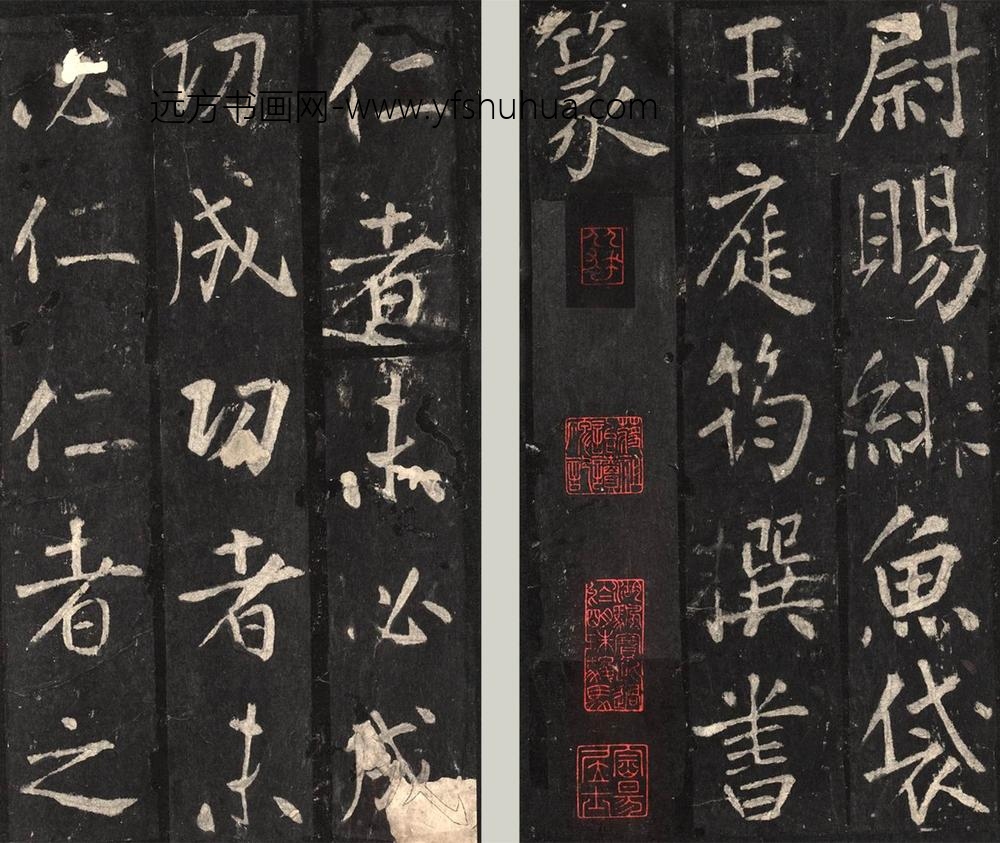 尉賜緋魚袋
王庭筠撰書
篆
仁者未必成
功成功者未
必仁仁者之
远方书画网-www.yfshuhua.com